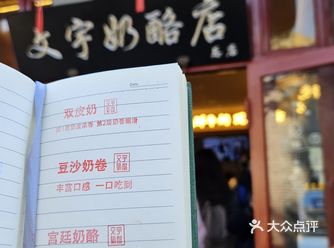 文宇奶酪店
总店
Date
双皮奶
文宇奶酪
豆沙奶卷
文宇奶酪
丰富口感 一口吃到
宫廷奶酪
文宇奶酪
大众点评